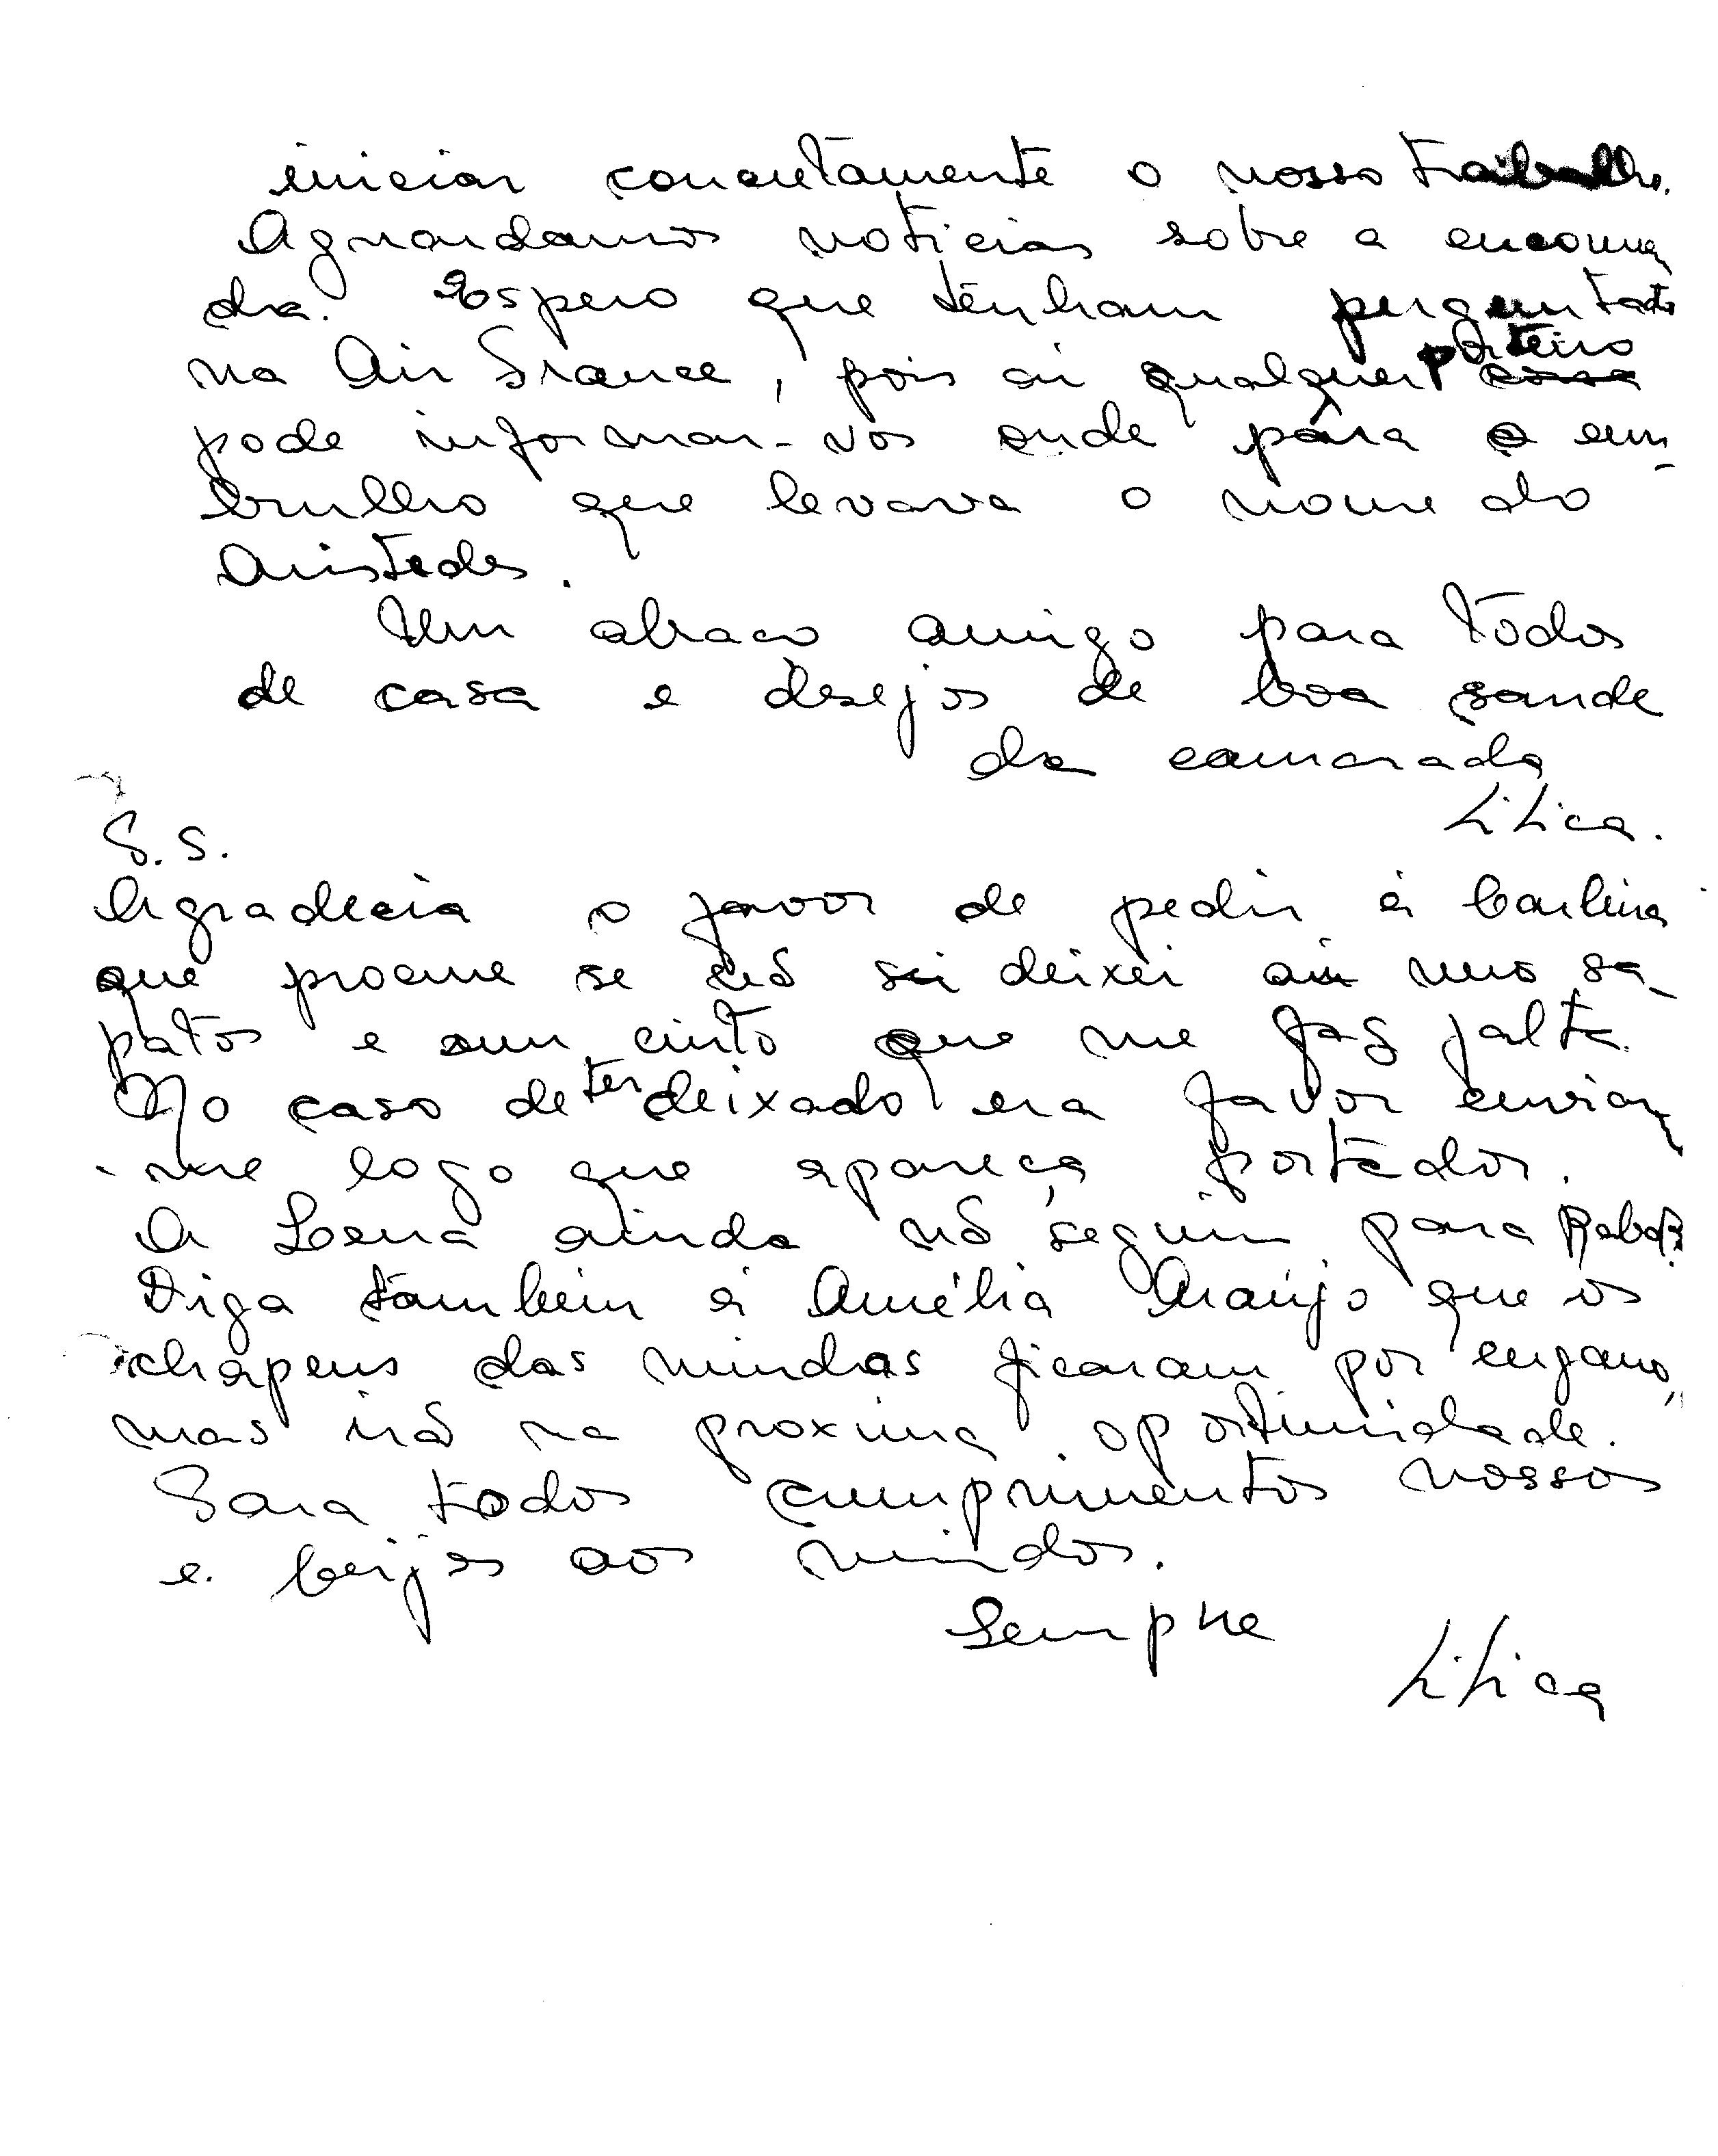 iniciar concretamente o nosso trabalho.
Aguardamos noticias sobre a encomen
da. Espero que tenham perguntado
na Air France, pois aí qualquer porteiro
pode informar-vos onde pára o em-
brulho que levava o nome do
Aristedes.
Um abraço amigo para todos
de casa e desejos de boa saude
da camarada
Lilica.
P.S.
Agradecia o favor de pedir à Carlina
que procure se não deixei aí uns sa-
patos e um cinto que me faz falta.
No caso de ter deixado era favor enviar
-me logo que apareça portador.
A Lena ainda não seguiu para Rabat.
Diga também à Amélia Araújo que os
chapeus das miudas ficaram por engano,
mas irão na proxima oportunidade.
Para todos cumprimentos nossos
e beijos aos miudos.
Sempre
Lilica